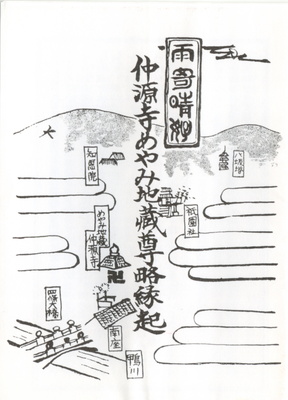 雨奇晴好
仲源寺めやみ地蔵尊略縁起
八坂塔
祇園社
知恩院
めやみ地蔵
仲源寺
南座
四条大橋
鴨川